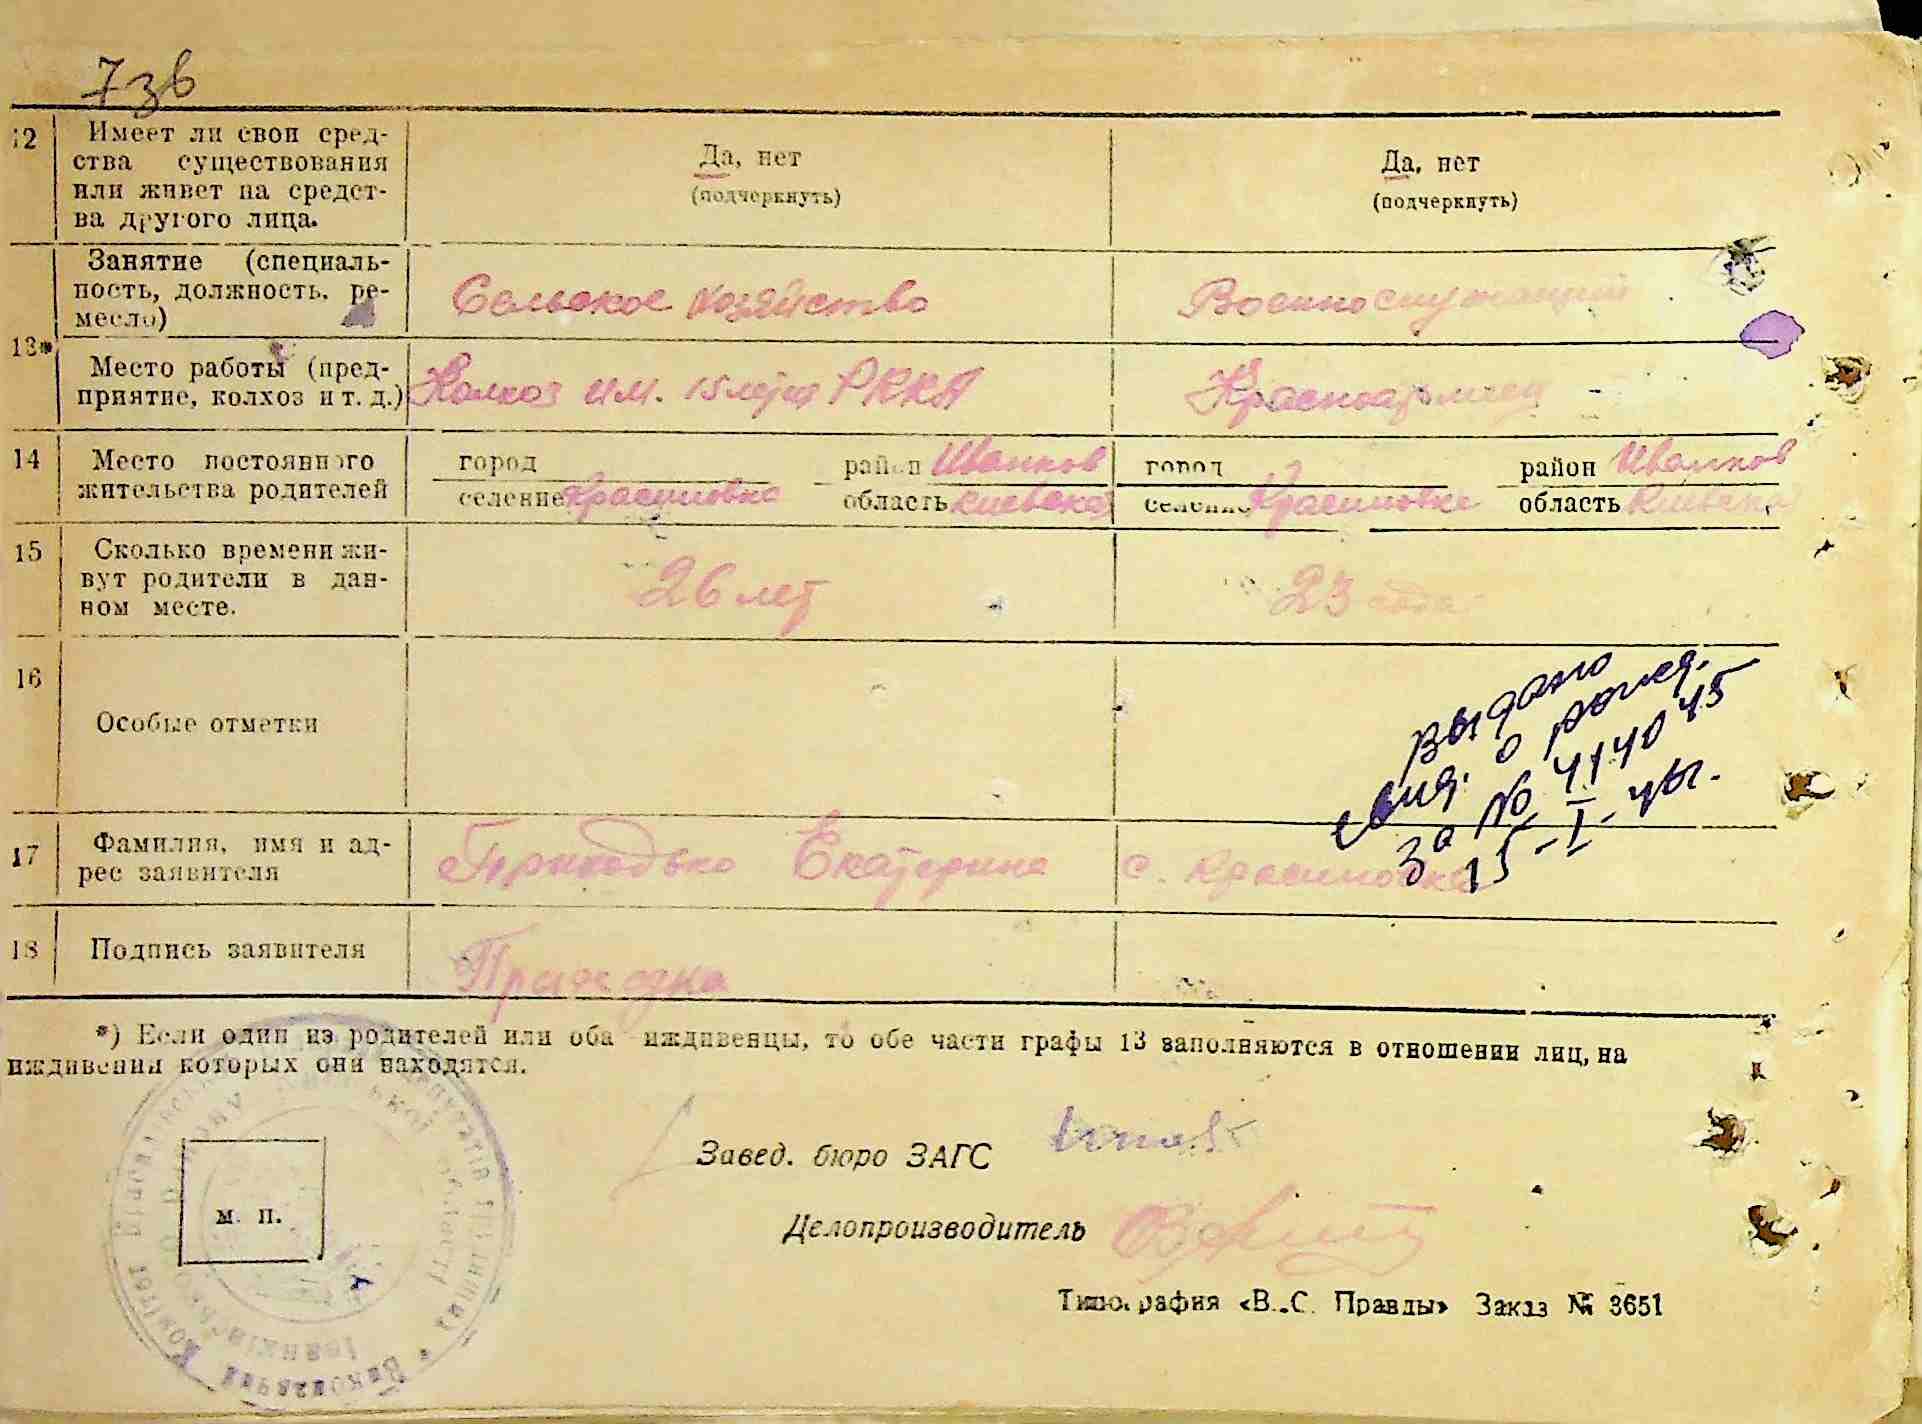 7зв
12 Имеет ли свои сред-
ства существования
или живет на средст-
ва другого лица.
Да, нет
(подчеркнуть)
Да, нет
(подчеркнуть)
13*
Занятие (специаль-
ность, должность, ре-
месло)
Сельское хозяйство
Военнослужащий
Место работы (пред-
приятие, колхоз и т. д.)
Колхоз им. 15летия РККА
Красноармеец
14 Место постоянного
жительства родителей
город район Иванков
селение Красиловка область Киевска
город район Иванков
селение Красиловка область Киевска
15 Сколько времени жи-
вут родители в дан-
ном месте.
26 лет
23 года
16 Особые отметки
выдано
свид. о рожд.
за № 414045
15-I-
17 Фамилия, имя и ад-
рес заявителя
Приходько Екатерина с. Красиловка
18 Подпись заявителя
*) Если один из родителей или оба иждивенцы, то обе части графы 13 заполняются в отношении лиц, на
иждивении которых они находятся.
м. п.
Завед. бюро ЗАГС
Делопроизводитель
Типография «В.С. Правды» Заказ № 3651